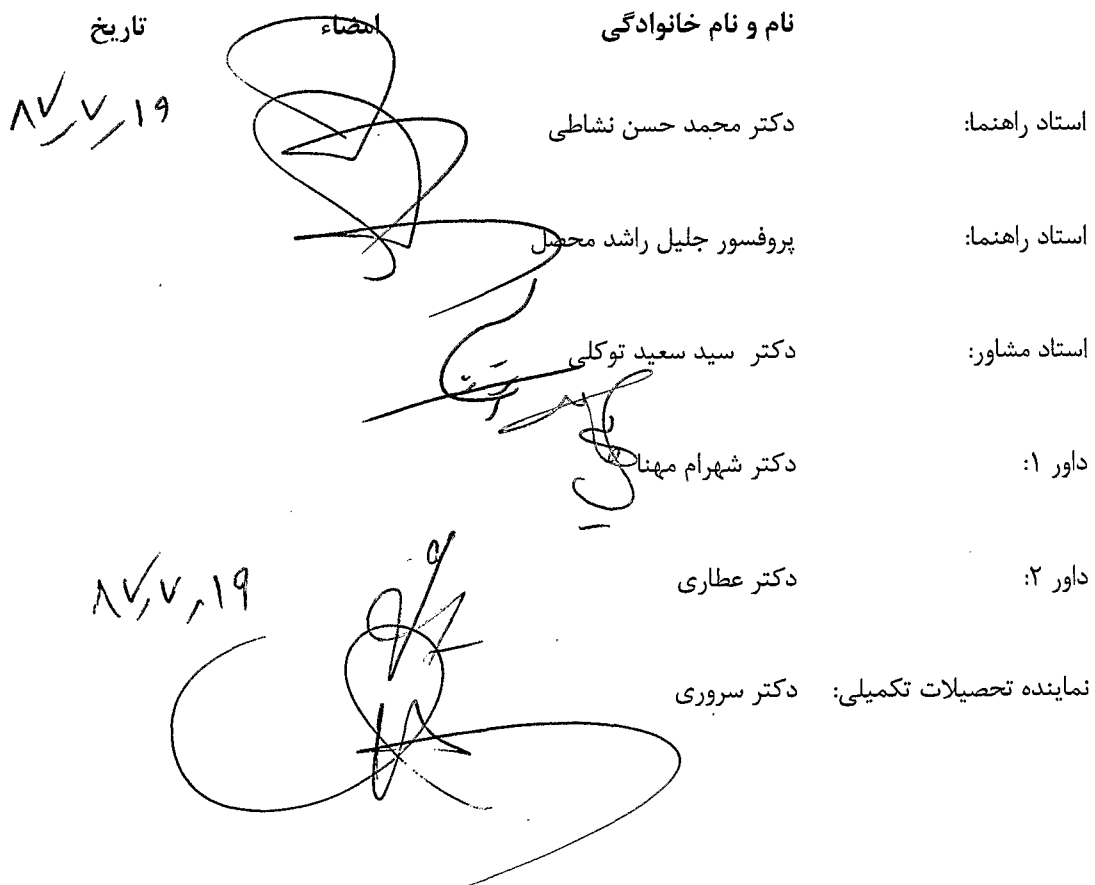 نام و نام خانوادگی امضاء تاریخ
استاد راهنما: دکتر محمد حسن نشاطی ۸۷٫۷٫۱۹
استاد راهنما: پروفسور جلیل راشد محصل
استاد مشاور: دکتر سید سعید توکلی
داور ۱: دکتر شهرام مهنا
داور ۲: دکتر عطاری ۸۷٫۷٫۱۹
نماینده تحصیلات تکمیلی: دکتر سروری